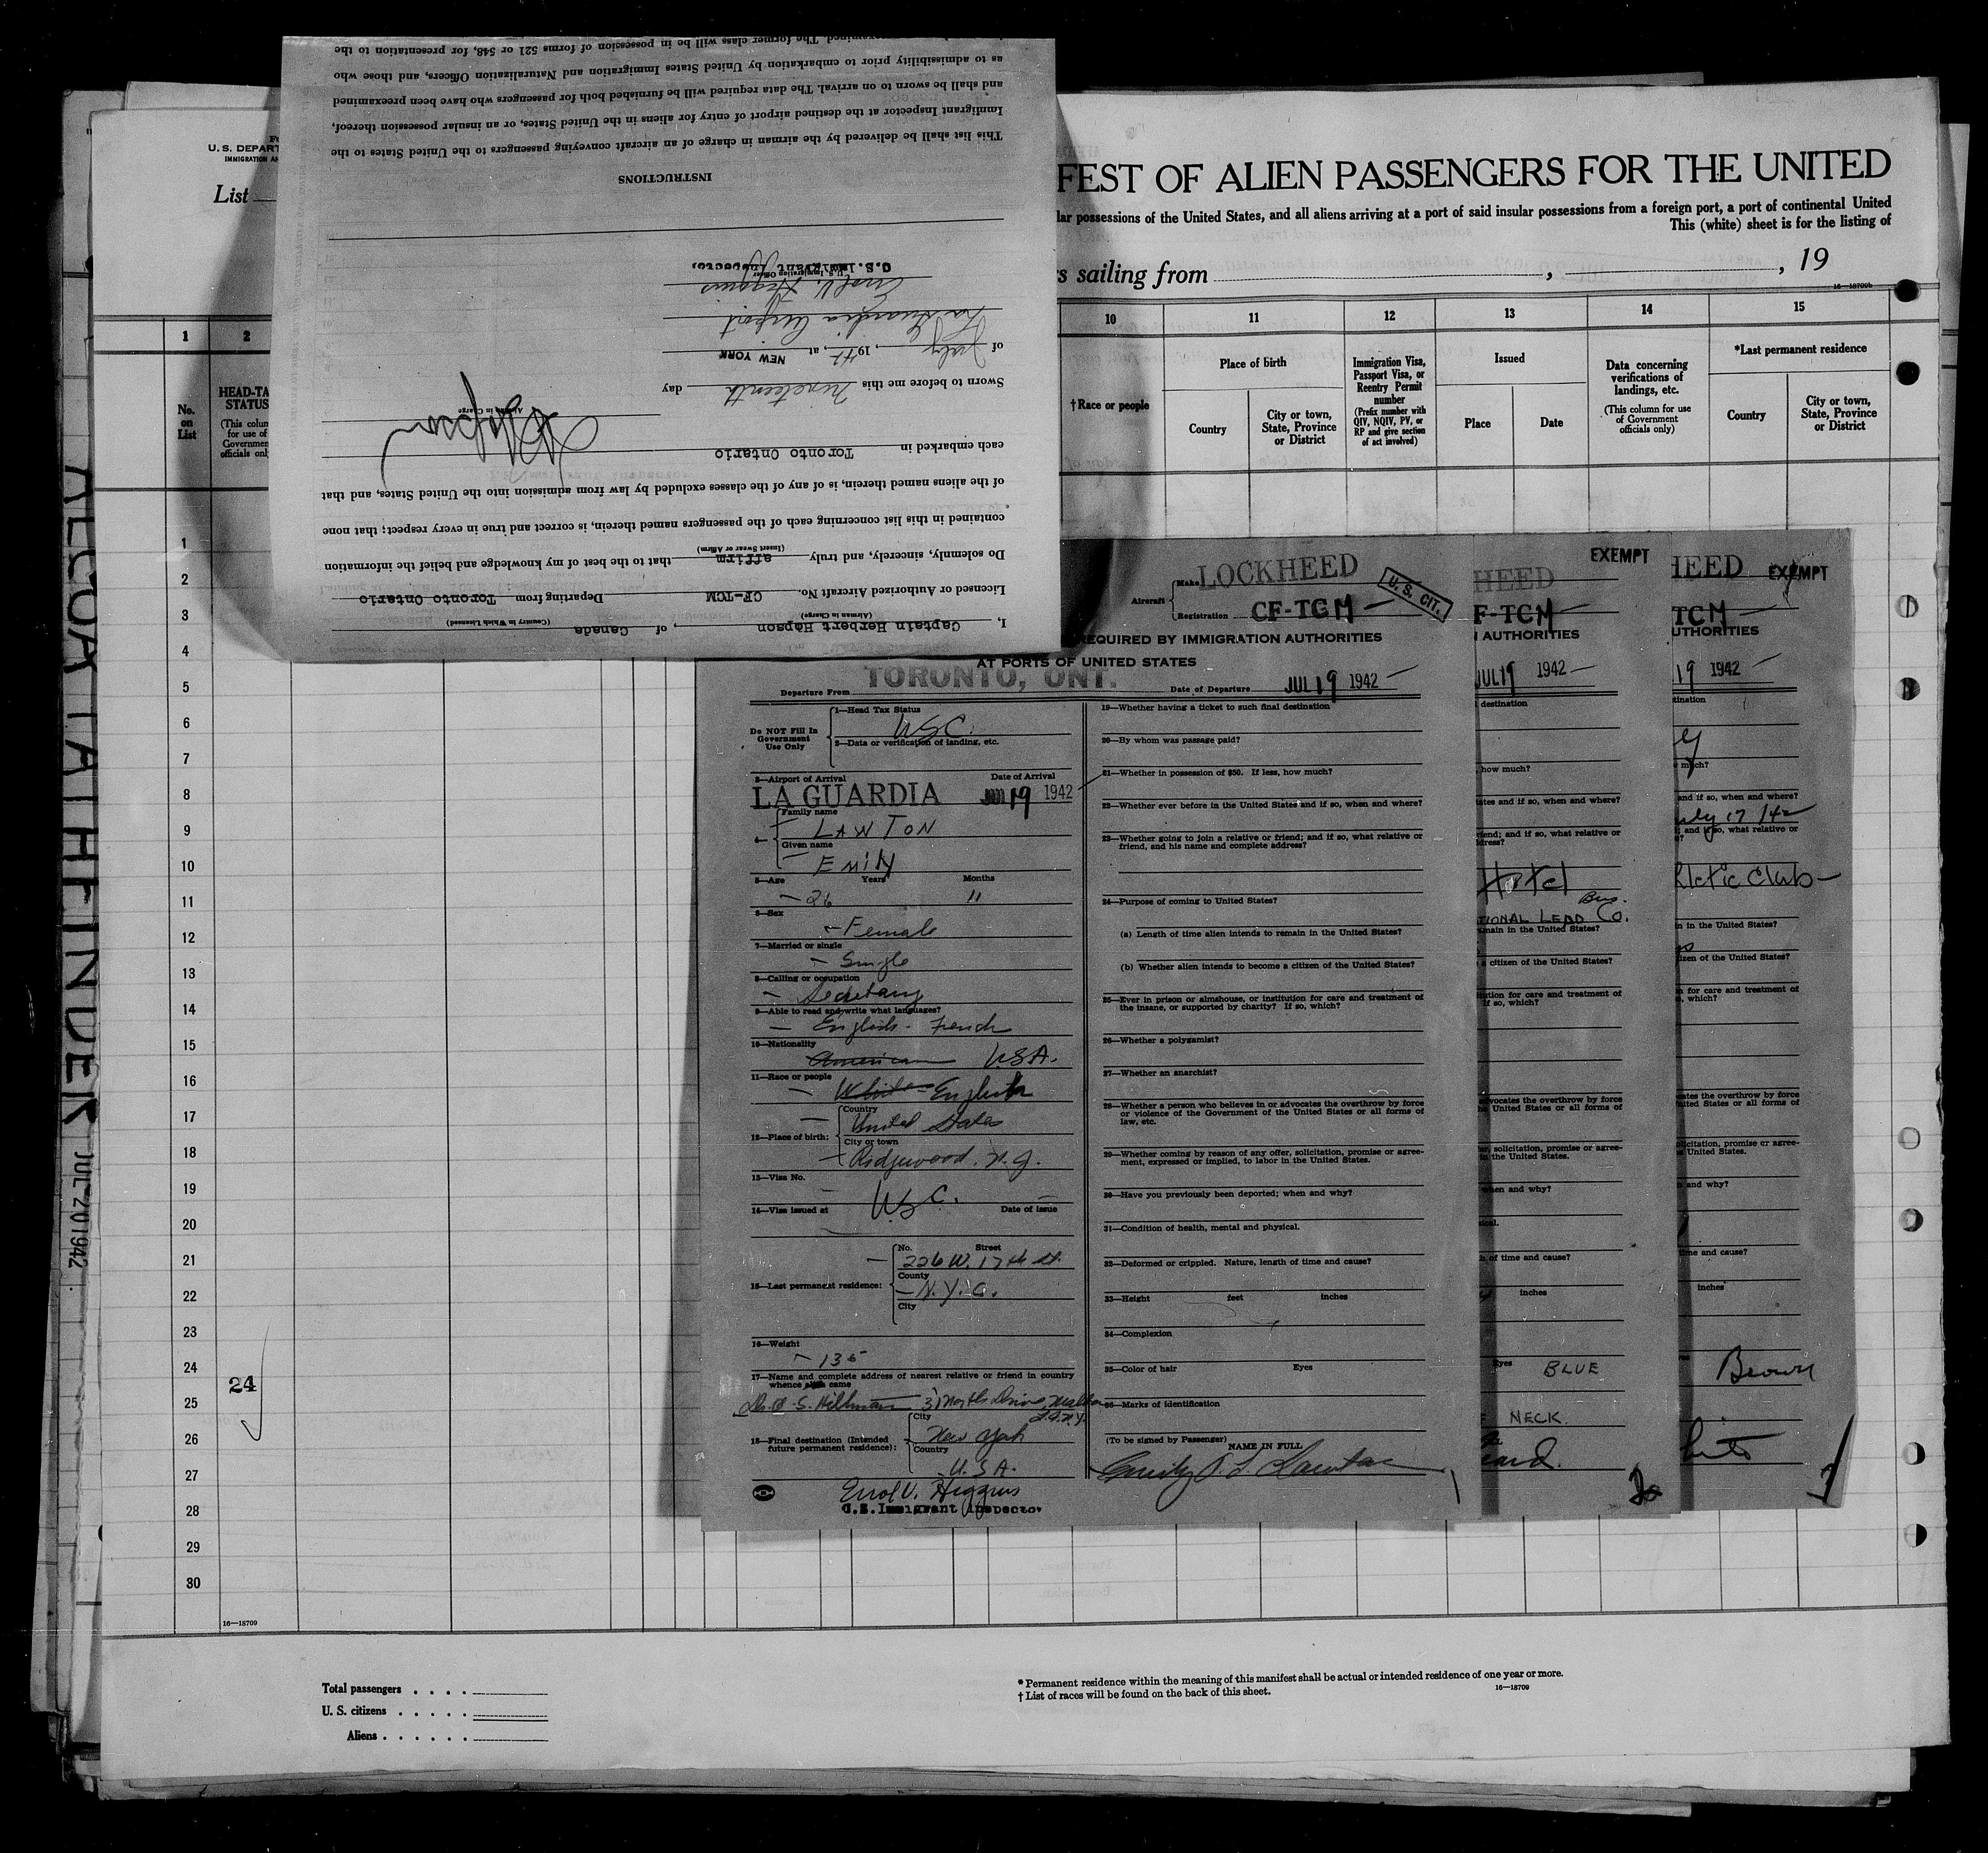 examined. The former class will be in possession of forms 521 or 548, for presentation to the
as to admissibility prior to embarkation by United States Immigration and Naturalization Officers, and those who
and shall be sworn to on arrival. The data required will be furnished both for passengers who have been preexamined
Immigrant Inspector at the destined airport of entry for aliens in the United States, or an insular possession thereof,
This list shall be delivered by the airman in charge of an aircraft conveying passengers to the United States to the
INSTRUCTIONS
U.S. Immigrant Inspector
U.S. Immigration Officer
Errol V. Higgins
La Guardia Airport
of July, 1942, at NEW YORK
Sworn to before me this nineteenth day
Airman in Charge
each embarked in Toronto Ontario
of the aliens named therein, is of any of the classes excluded by law from admission into the United States, and that
contained in this list concerning each of the passengers named therein, is correct and true in every respect; that none
(Insert Swear or Affirm)
Do solemnly, sincerely, and truly affirm that to the best of my knowledge and belief the information
Licensed or Authorized Aircraft No. CF-TCM Departing from Toronto Ontario
(Airman in Charge) (Country in Which Licensed)
I, Captain Herbert Hopson, of Canada
U. S. DEPART
IMMIGRATION AN
List
FEST OF ALIEN PASSENGERS FOR THE UNITED
lar possessions of the United States, and all aliens arriving at a port of said insular possessions from a foreign port, a port of continental United
This (white) sheet is for the listing of
s sailing from , , 19
16—18709b
1 2 10 11 12 13 14 15
No. on List
HEAD-TA
STATUS
(This colum
for use of
Governmen
officials onl
†Race or people
Place of birth
Country
City or town, State, Province or District
Immigration Visa, Passport Visa, or Reentry Permit number
(Prefix number with QIV, NQIV, PV, or RP and give section of act involved)
Issued
Place
Date
Data concerning verifications of landings, etc.
(This column for use of Government officials only)
*Last permanent residence
Country
City or town, State, Province or District
1
2
3
4
5
6
7
8
9
10
11
12
13
14
15
16
17
18
19
20
21
22
23
24
25
26
27
28
29
30
24
16—18709
ALCOA PATHFINDER JUL 20 1942
Aircraft
Make LOCKHEED
Registration CF-TCM
U. S. CIT.
REQUIRED BY IMMIGRATION AUTHORITIES
AT PORTS OF UNITED STATES
Departure From TORONTO, ONT.
Date of Departure JUL 19 1942
Do NOT Fill In
Government
Use Only
1—Head Tax Status
USC.
2—Data or verification of landing, etc.
3—Airport of Arrival Date of Arrival
LA GUARDIA 19 1942
4—
Family name
LAWTON
Given name
Emily
5—Age Years Months
26 11
6—Sex
Female
7—Married or single
Single
8—Calling or occupation
Secretary
9—Able to read and write what languages?
English - French
10—Nationality
American USA.
11—Race or people
White English
12—Place of birth:
Country
United States
City or town
Ridgewood. N.J.
13—Visa No.
USC.
14—Visa issued at Date of issue
15—Last permanent residence:
No. Street
226 W. 17th St.
County
N.Y.C.
City
16—Weight
135
17—Name and complete address of nearest relative or friend in country
whence alien came
S. Hillman 31
18—Final destination (Intended
future permanent residence):
City
New York
Country
U.S.A.
Errol V. Higgins
U.S. Immigrant Inspector
19—Whether having a ticket to such final destination
20—By whom was passage paid?
21—Whether in possession of $50. If less, how much?
22—Whether ever before in the United States and if so, when and where?
23—Whether going to join a relative or friend; and if so, what relative or
friend, and his name and complete address?
24—Purpose of coming to United States?
(a) Length of time alien intends to remain in the United States?
(b) Whether alien intends to become a citizen of the United States?
25—Ever in prison or almshouse, or institution for care and treatment of
the insane, or supported by charity? If so, which?
26—Whether a polygamist?
27—Whether an anarchist?
28—Whether a person who believes in or advocates the overthrow by force
or violence of the Government of the United States or all forms of
law, etc.
29—Whether coming by reason of any offer, solicitation, promise or agree-
ment, expressed or implied, to labor in the United States.
30—Have you previously been deported; when and why?
31—Condition of health, mental and physical.
32—Deformed or crippled. Nature, length of time and cause?
33—Height feet inches
34—Complexion
35—Color of hair Eyes
36—Marks of identification
(To be signed by Passenger) NAME IN FULL
Emily Lawton
EXEMPT
HEED
F-TCM
AUTHORITIES
JUL 19 1942
destination
how much?
tates and if so, when and where?
riend; and if so, what relative or
dress?
Hotel
Bus.
TIONAL LEAD CO.
main in the United States?
a citizen of the United States?
tution for care and treatment of
If so, which?
dvocates the overthrow by force
he United States or all forms of
er, solicitation, promise or agree-
in the United States.
hen and why?
sical.
h of time and cause?
inches
Eyes BLUE
NECK.
ard.
EXEMPT
HEED
TCM
UTHORITIES
19 1942
tination
y
much?
and if so, when and where?
July 17/42
; and if so, what relative or
hletic Club
n in the United States?
izen of the United States?
n for care and treatment of
, which?
ates the overthrow by force
nited States or all forms of
olicitation, promise or agree-
e United States.
and why?
time and cause?
inches
Brown
Total passengers
U. S. citizens
Aliens
* Permanent residence within the meaning of this manifest shall be actual or intended residence of one year or more.
† List of races will be found on the back of this sheet.
16—18709